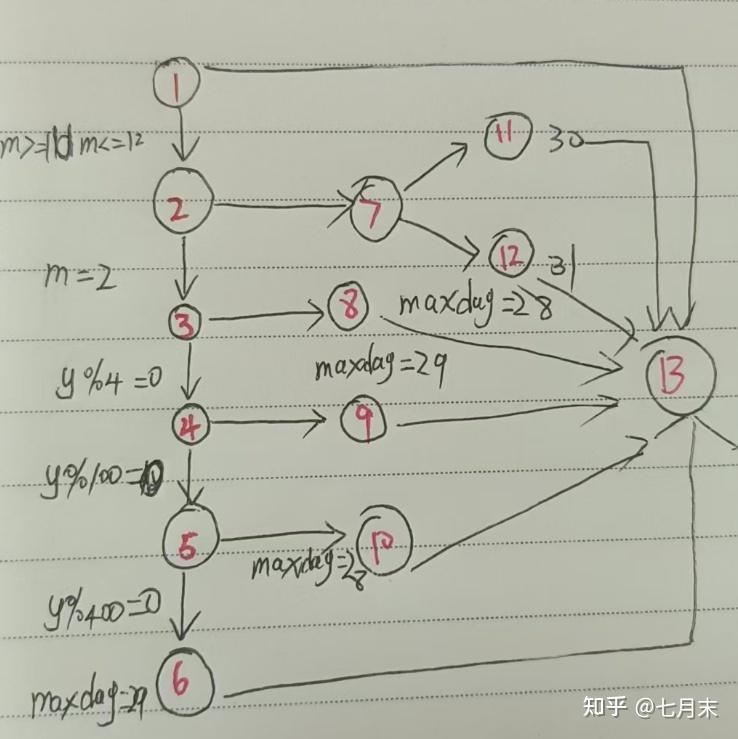 1
11 30
m>=1 m<=12
2
7
12 31
m=2
3
8 maxdag=28
maxdag=29
13
y%4=0
4
9
y%100=0
5
10
maxdag=28
y%400=0
6
maxdag=29
知乎 @七月末